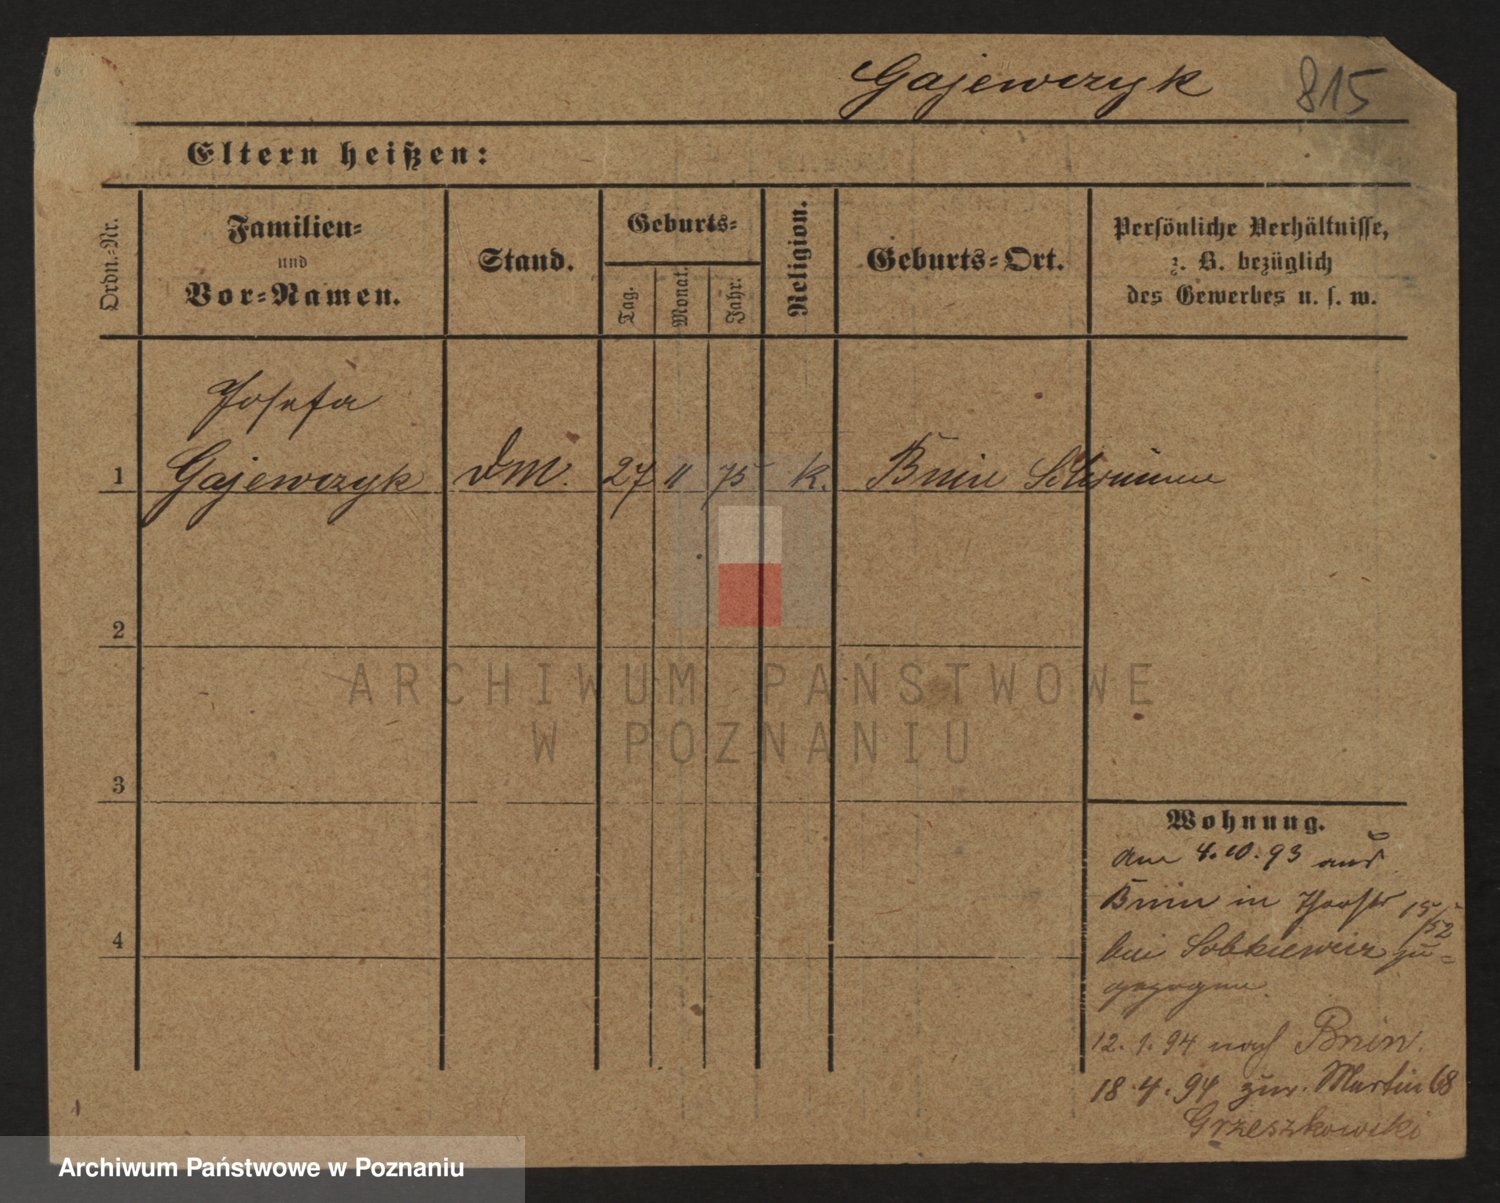 Gajewczyk 815
Eltern heißen:
Ordn.-Nr.
Familien-
und
Vor-Namen.
Stand.
Geburts-
Tag.
Monat.
Jahr.
Religion.
Geburts-Ort.
Persönliche Verhältnisse,
z. B. bezüglich
des Gewerbes u. s. w.
Josefa
1 Gajewczyk dM. 27 11 75 k. Bnin Schrimm
2
3
4
Wohnung.
am 4.10.93 aus
Bnin in 15/52
bei Sobkiewicz zu-
gezogen.
12.1.94 nach Bnin.
18.4.94 zur. Martin 68
Grzeszkowski
ARCHIWUM PAŃSTWOWE
W POZNANIU
Archiwum Państwowe w Poznaniu